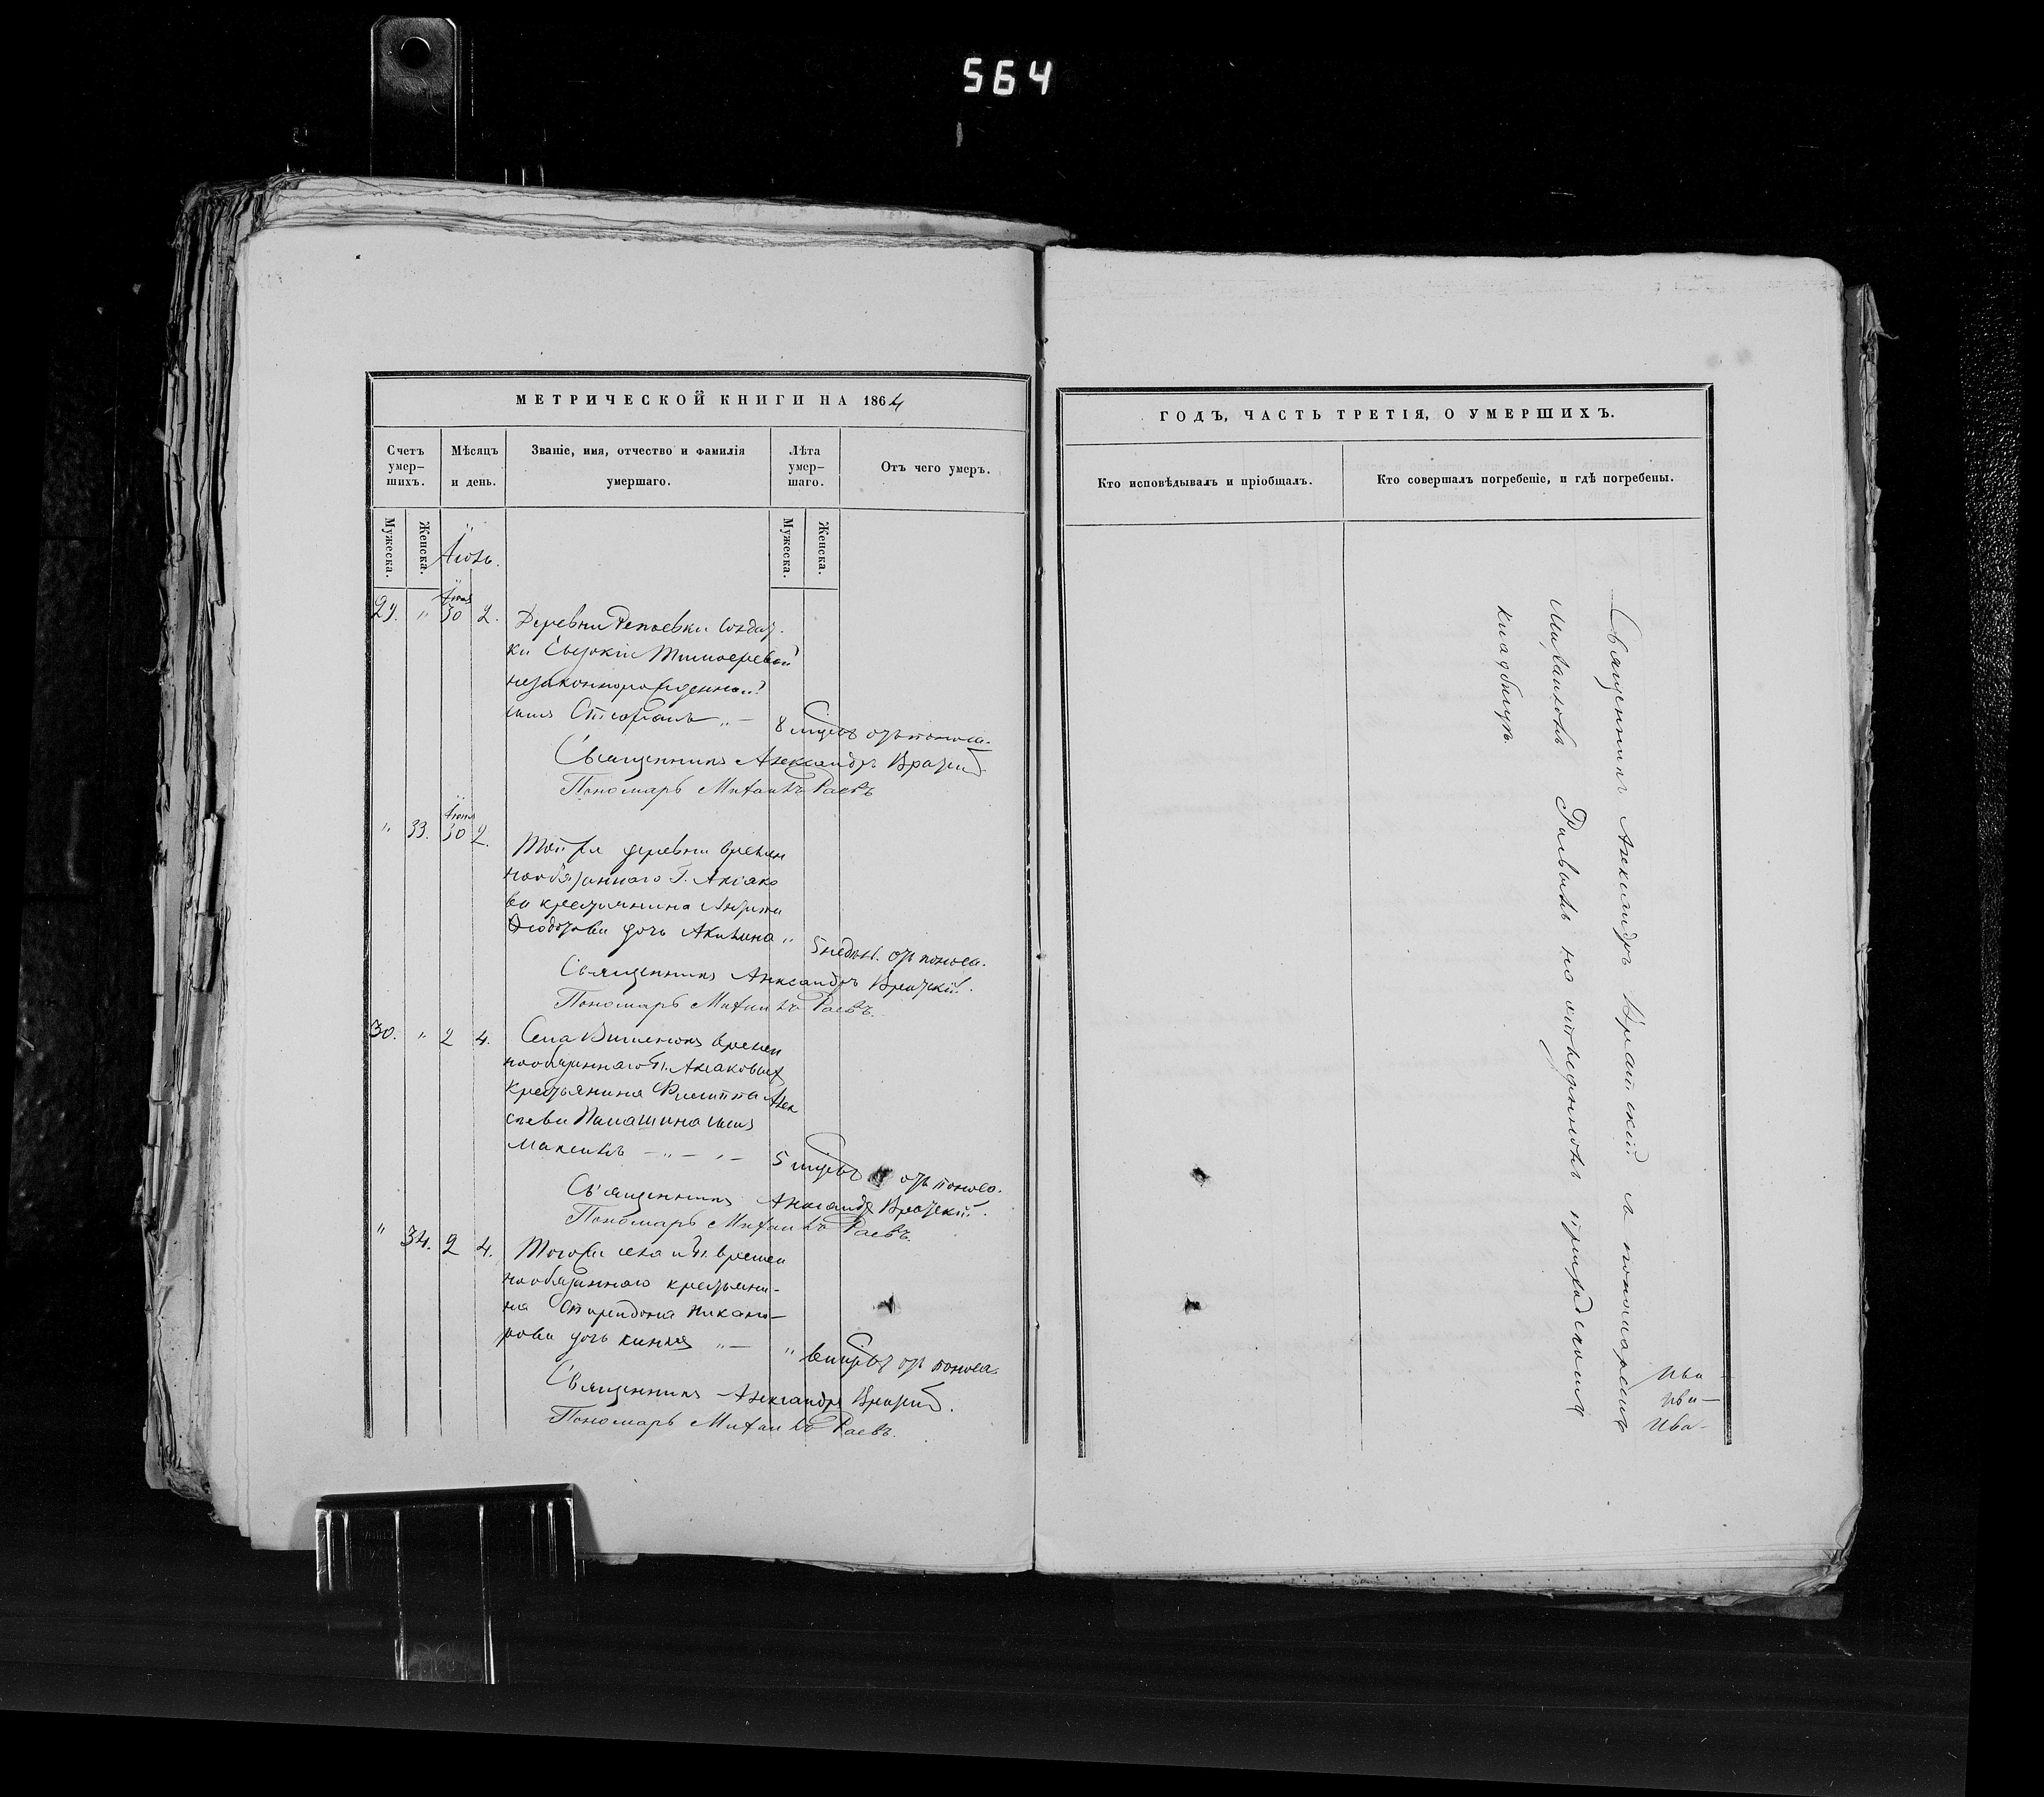 564
МЕТРИЧЕСКОЙ КНИГИ НА 1864
Счетъ умер-шихъ.
Мѣсяцъ и день.
Званіе, имя, отчество и фамилія умершаго.
Лѣта умер-шаго.
Отъ чего умеръ.
Мужеска.
Женска.
Мужеска.
Женска.
Іюль.
29. " Іюня 30 2. Деревни Репьевки солдат-
ки Евдокіи Тимофеевой
незаконнорожденной
сынъ Стефанъ " — 8 мѣсяц. отъ поноса.
Священникъ Александръ Вратскій
Пономарь Михаилъ Раевъ
" 33. Іюня 30 2. Той же деревни времен
нообязаннаго Г.
ва крестьянина
Ѳеодорова дочь Акилина " 5 недѣл. отъ поноса.
Священникъ Александръ Вратскій.
Пономарь Михаилъ Раевъ.
30. " 2 4. Села времен
нообязаннаго
крестьянина Филиппа Алек
сѣева сынъ
Максимъ — " — " — 5 мѣсяц. отъ поноса.
Священникъ Александръ Вратскій.
Пономарь Михаилъ Раевъ.
" 34. 2 4. Тогожъ села времен
нообязаннаго крестьяни-
на Спиридона Никано-
рова дочь " — " отъ поноса.
Священникъ Александръ Вратскій.
Пономарь Михаилъ Раевъ.
ГОДЪ, ЧАСТЬ ТРЕТІЯ, О УМЕРШИХЪ.
Кто исповѣдывалъ и пріобщалъ.
Кто совершалъ погребеніе, и гдѣ погребены.
Священникъ Александръ Вратскій съ пономаремъ
Михаиломъ Раевымъ на отведенномъ приходскомъ
кладбищѣ.
Ива-
Ива-
Ива-